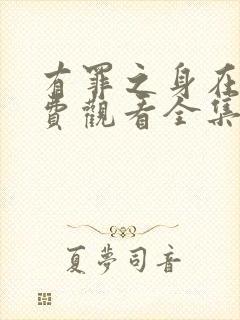 有罪之身在
費觀看全集
夏夢司音